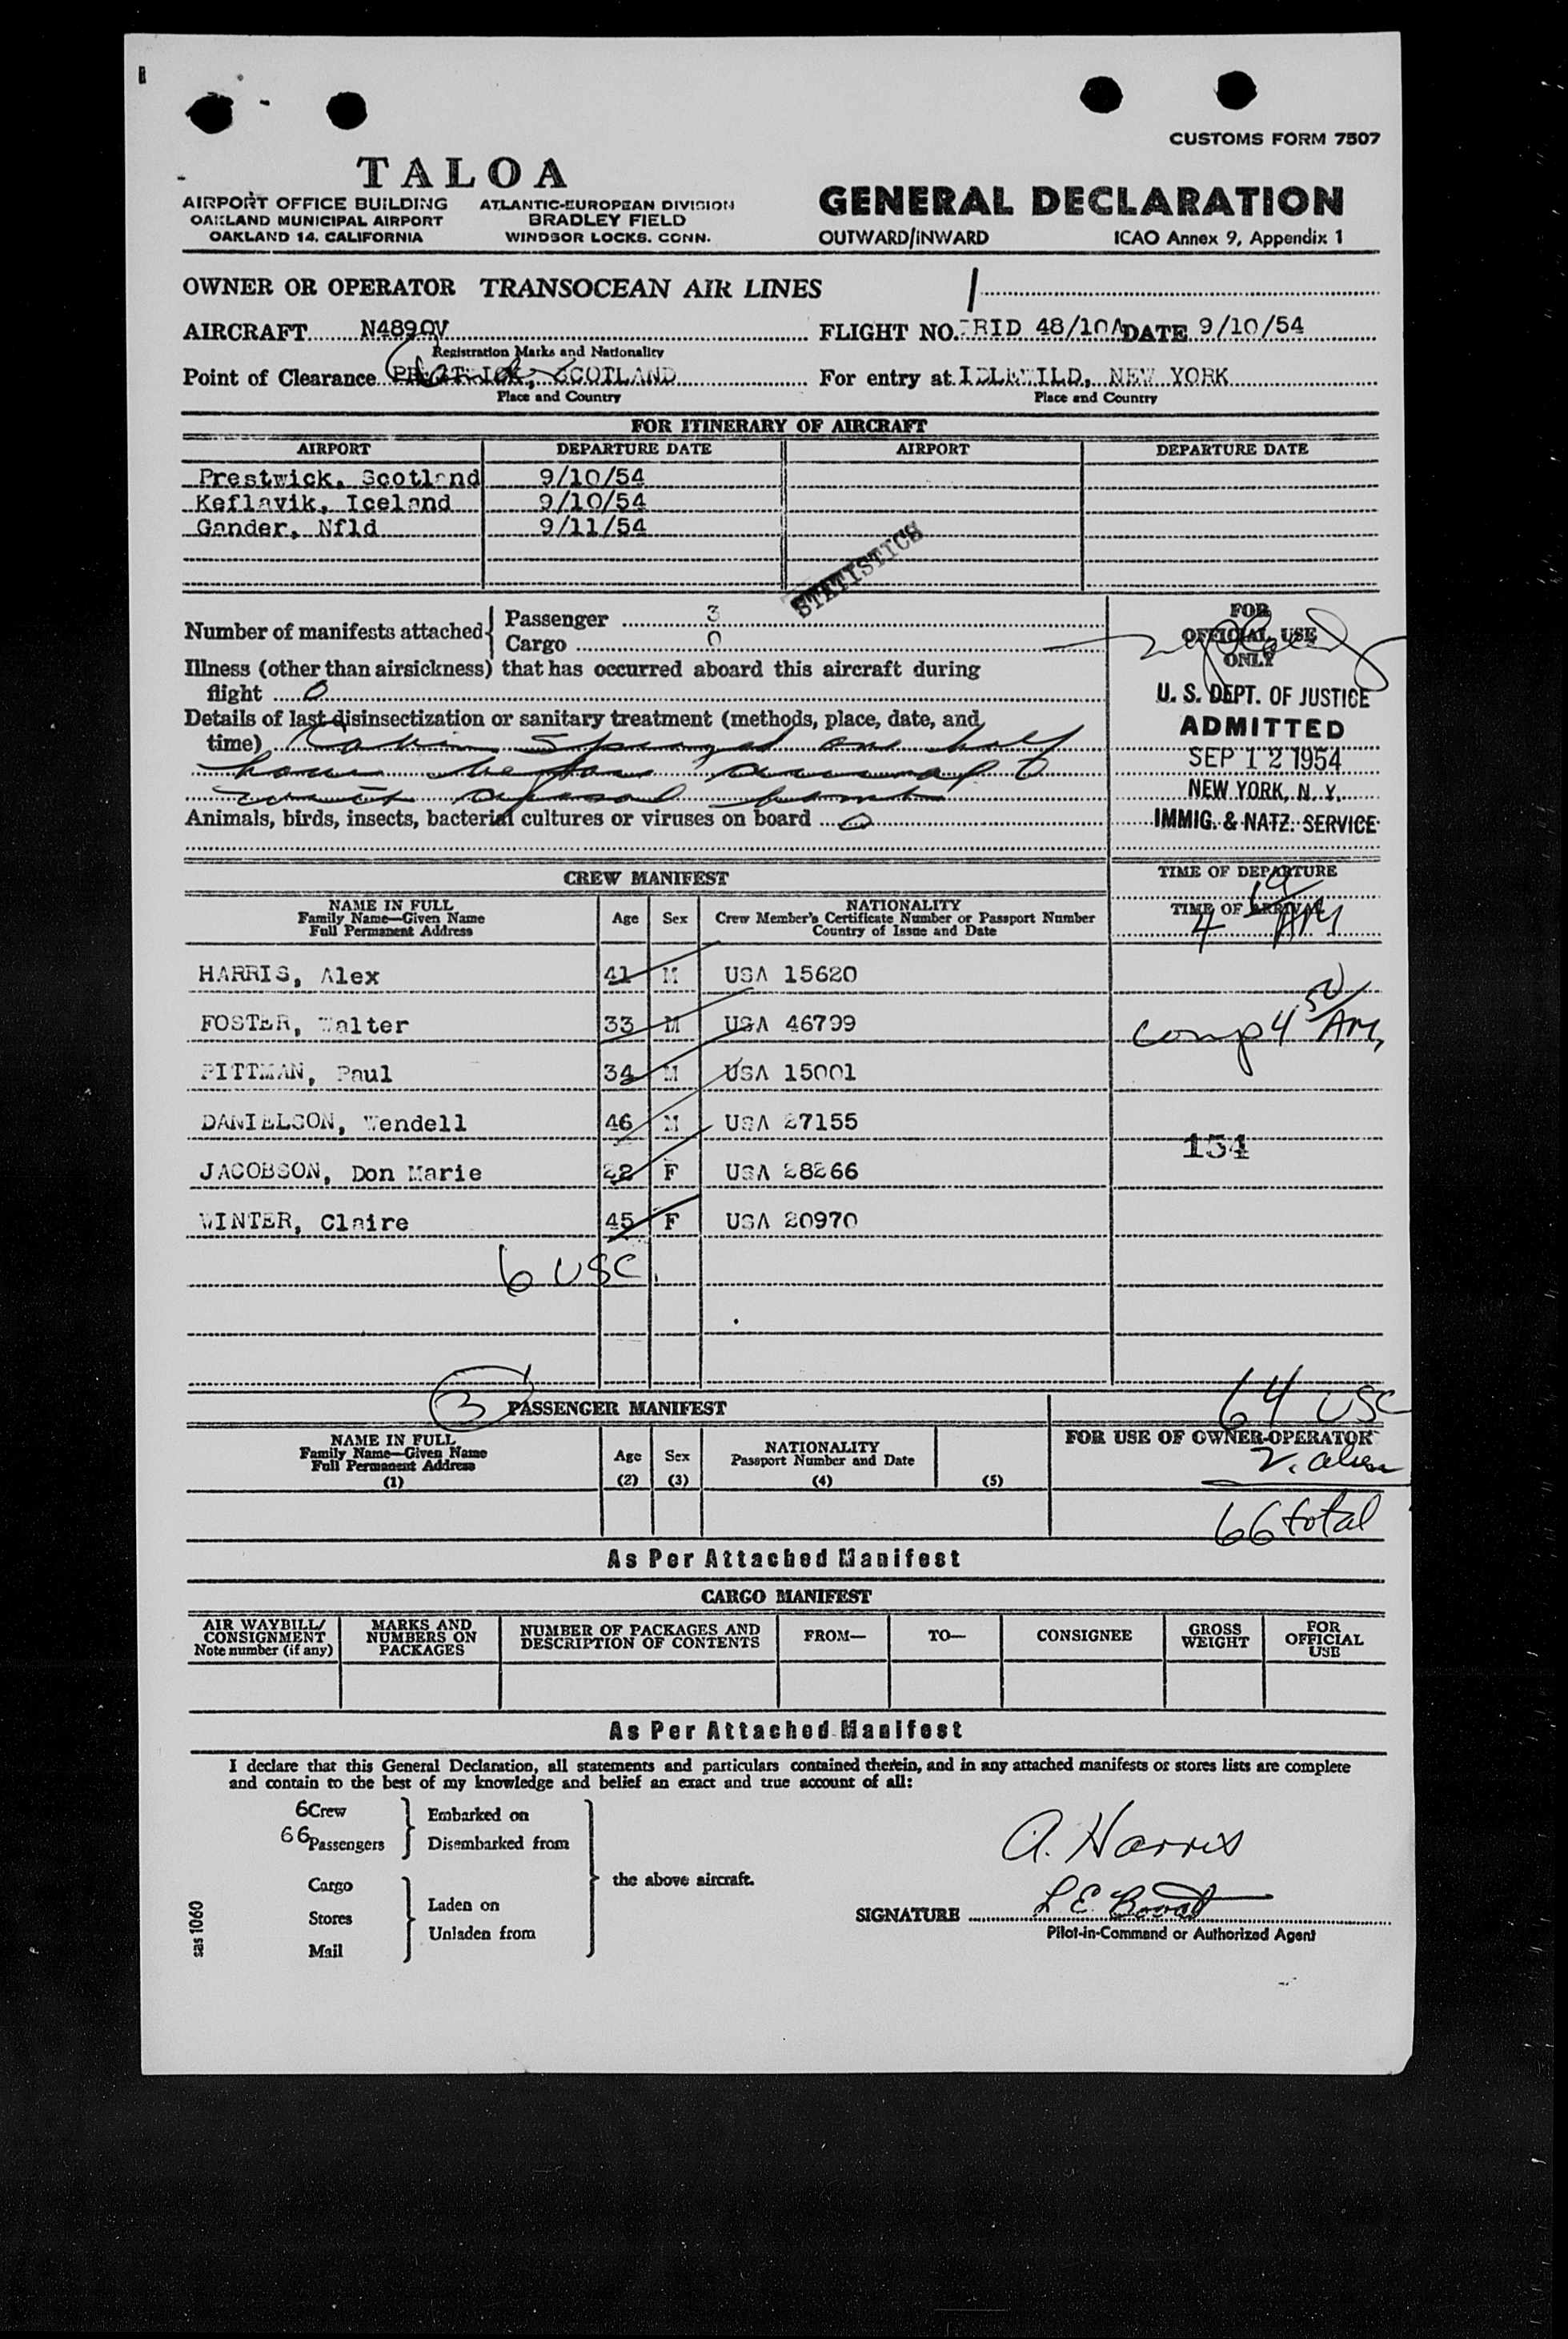 CUSTOMS FORM 7507
TALOA
AIRPORT OFFICE BUILDING
OAKLAND MUNICIPAL AIRPORT
OAKLAND 14, CALIFORNIA
ATLANTIC-EUROPEAN DIVISION
BRADLEY FIELD
WINDSOR LOCKS, CONN.
GENERAL DECLARATION
OUTWARD/INWARD ICAO Annex 9, Appendix 1
OWNER OR OPERATOR TRANSOCEAN AIR LINES
AIRCRAFT N4890V FLIGHT NO. 48/10A DATE 9/10/54
Registration Marks and Nationality
Point of Clearance SCOTLAND For entry at IDLEWILD, NEW YORK
Place and Country Place and Country
FOR ITINERARY OF AIRCRAFT
AIRPORT DEPARTURE DATE AIRPORT DEPARTURE DATE
Prestwick, Scotland 9/10/54
Keflavik, Iceland 9/10/54
Gander, Nfld 9/11/54
STATISTICS
Number of manifests attached Passenger 3
Cargo 0
Illness (other than airsickness) that has occurred aboard this aircraft during
flight 0
Details of last disinsectization or sanitary treatment (methods, place, date, and
time) Cabin sprayed one half
hour before arrival
with aerosol bomb
Animals, birds, insects, bacterial cultures or viruses on board 0
FOR
OFFICIAL USE
ONLY
U. S. DEPT. OF JUSTICE
ADMITTED
SEP 12 1954
NEW YORK, N. Y.
IMMIG. & NATZ. SERVICE
TIME OF DEPARTURE
TIME OF ARRIVAL
4 19 AM
comp 4 50 AM
134
CREW MANIFEST
NAME IN FULL
Family Name—Given Name
Full Permanent Address
Age Sex
NATIONALITY
Crew Member's Certificate Number or Passport Number
Country of Issue and Date
HARRIS, Alex 41 M USA 15620
FOSTER, Walter 33 M USA 46799
PITTMAN, Paul 34 M USA 15001
DANIELSON, Wendell 46 M USA 27155
JACOBSON, Don Marie 22 F USA 28266
WINTER, Claire 45 F USA 20970
6 USC
3 PASSENGER MANIFEST
64 USC
NAME IN FULL
Family Name—Given Name
Full Permanent Address
(1)
Age
(2)
Sex
(3)
NATIONALITY
Passport Number and Date
(4)
(5)
FOR USE OF OWNER-OPERATOR
2. alien
66 total
As Per Attached Manifest
CARGO MANIFEST
AIR WAYBILL/
CONSIGNMENT
Note number (if any)
MARKS AND
NUMBERS ON
PACKAGES
NUMBER OF PACKAGES AND
DESCRIPTION OF CONTENTS
FROM—
TO—
CONSIGNEE
GROSS
WEIGHT
FOR
OFFICIAL
USE
As Per Attached Manifest
I declare that this General Declaration, all statements and particulars contained therein, and in any attached manifests or stores lists are complete
and contain to the best of my knowledge and belief an exact and true account of all:
6 Crew
66 Passengers
Embarked on
Disembarked from
Cargo
Stores
Mail
Laden on
Unladen from
the above aircraft.
A. Harris
SIGNATURE L E
Pilot-in-Command or Authorized Agent
sas 1060